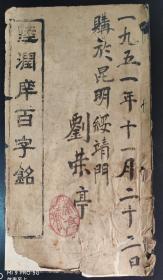 一九五一年十一月二十二日
購於昆明綏靖門
劉榮亭
潤庠百字銘